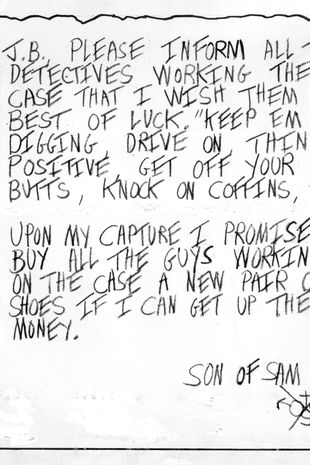 J.B. PLEASE INFORM ALL T
DETECTIVES WORKING THE
CASE THAT I WISH THEM
BEST OF LUCK. "KEEP EM
DIGGING, DRIVE ON, THIN
POSITIVE, GET OFF YOUR
BUTTS, KNOCK ON COFFINS,
UPON MY CAPTURE I PROMISE
BUY ALL THE GUYS WORKIN
ON THE CASE A NEW PAIR O
SHOES IF I CAN GET UP THE
MONEY.
SON OF SAM